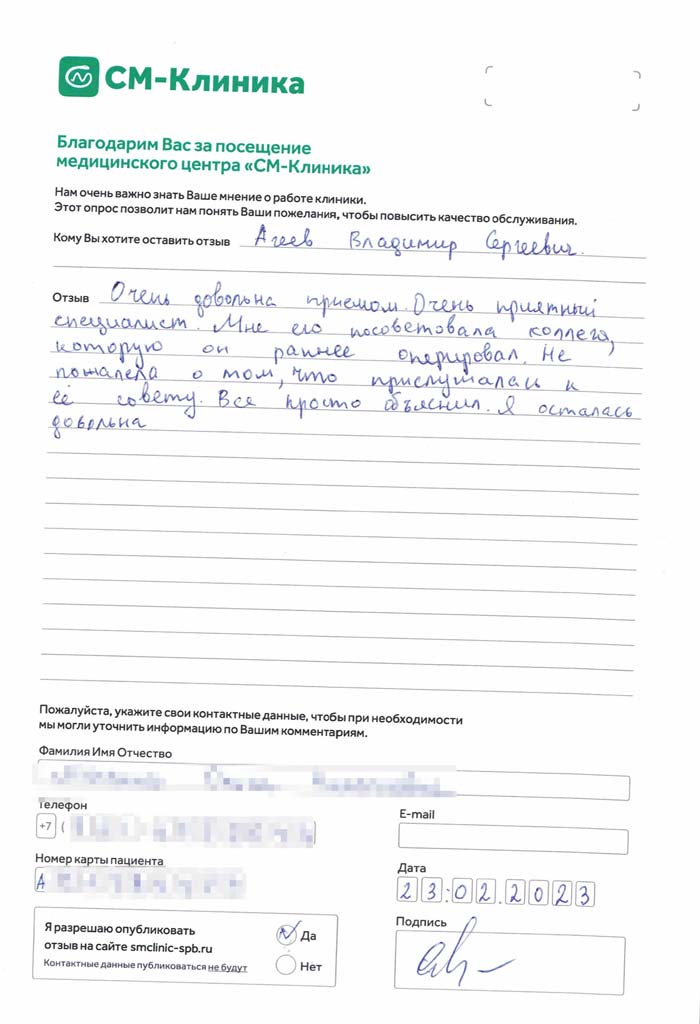 СМ-Клиника
Благодарим Вас за посещение
медицинского центра «СМ-Клиника»
Нам очень важно знать Ваше мнение о работе клиники.
Этот опрос позволит нам понять Ваши пожелания, чтобы повысить качество обслуживания.
Кому Вы хотите оставить отзыв Агеев Владимир Сергеевич.
Отзыв Очень довольна приемом. Очень приятный
специалист. Мне его посоветовала коллега,
которую он раннее оперировал. Не
пожалела о том, что прислушалась к
её совету. Все просто объяснил. Я осталась
довольна
Пожалуйста, укажите свои контактные данные, чтобы при необходимости
мы могли уточнить информацию по Вашим комментариям.
Фамилия Имя Отчество
Телефон
+7 (
E-mail
Номер карты пациента
А
Дата
23.02.2023
Я разрешаю опубликовать
отзыв на сайте smclinic-spb.ru
Контактные данные публиковаться не будут
Да
Нет
Подпись